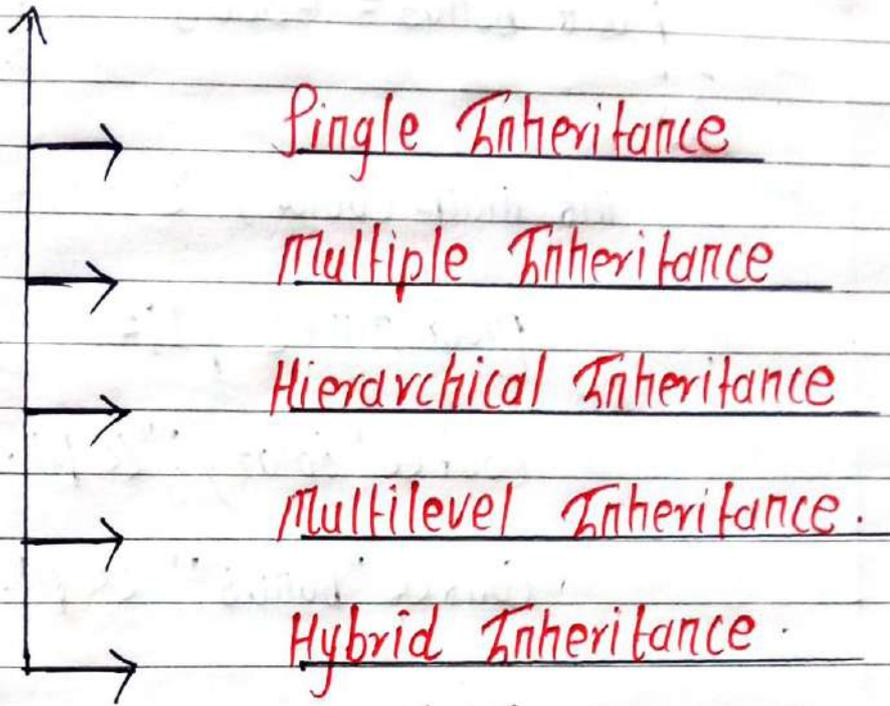 Single Inheritance
Multiple Inheritance
Hierarchical Inheritance
Multilevel Inheritance.
Hybrid Inheritance.